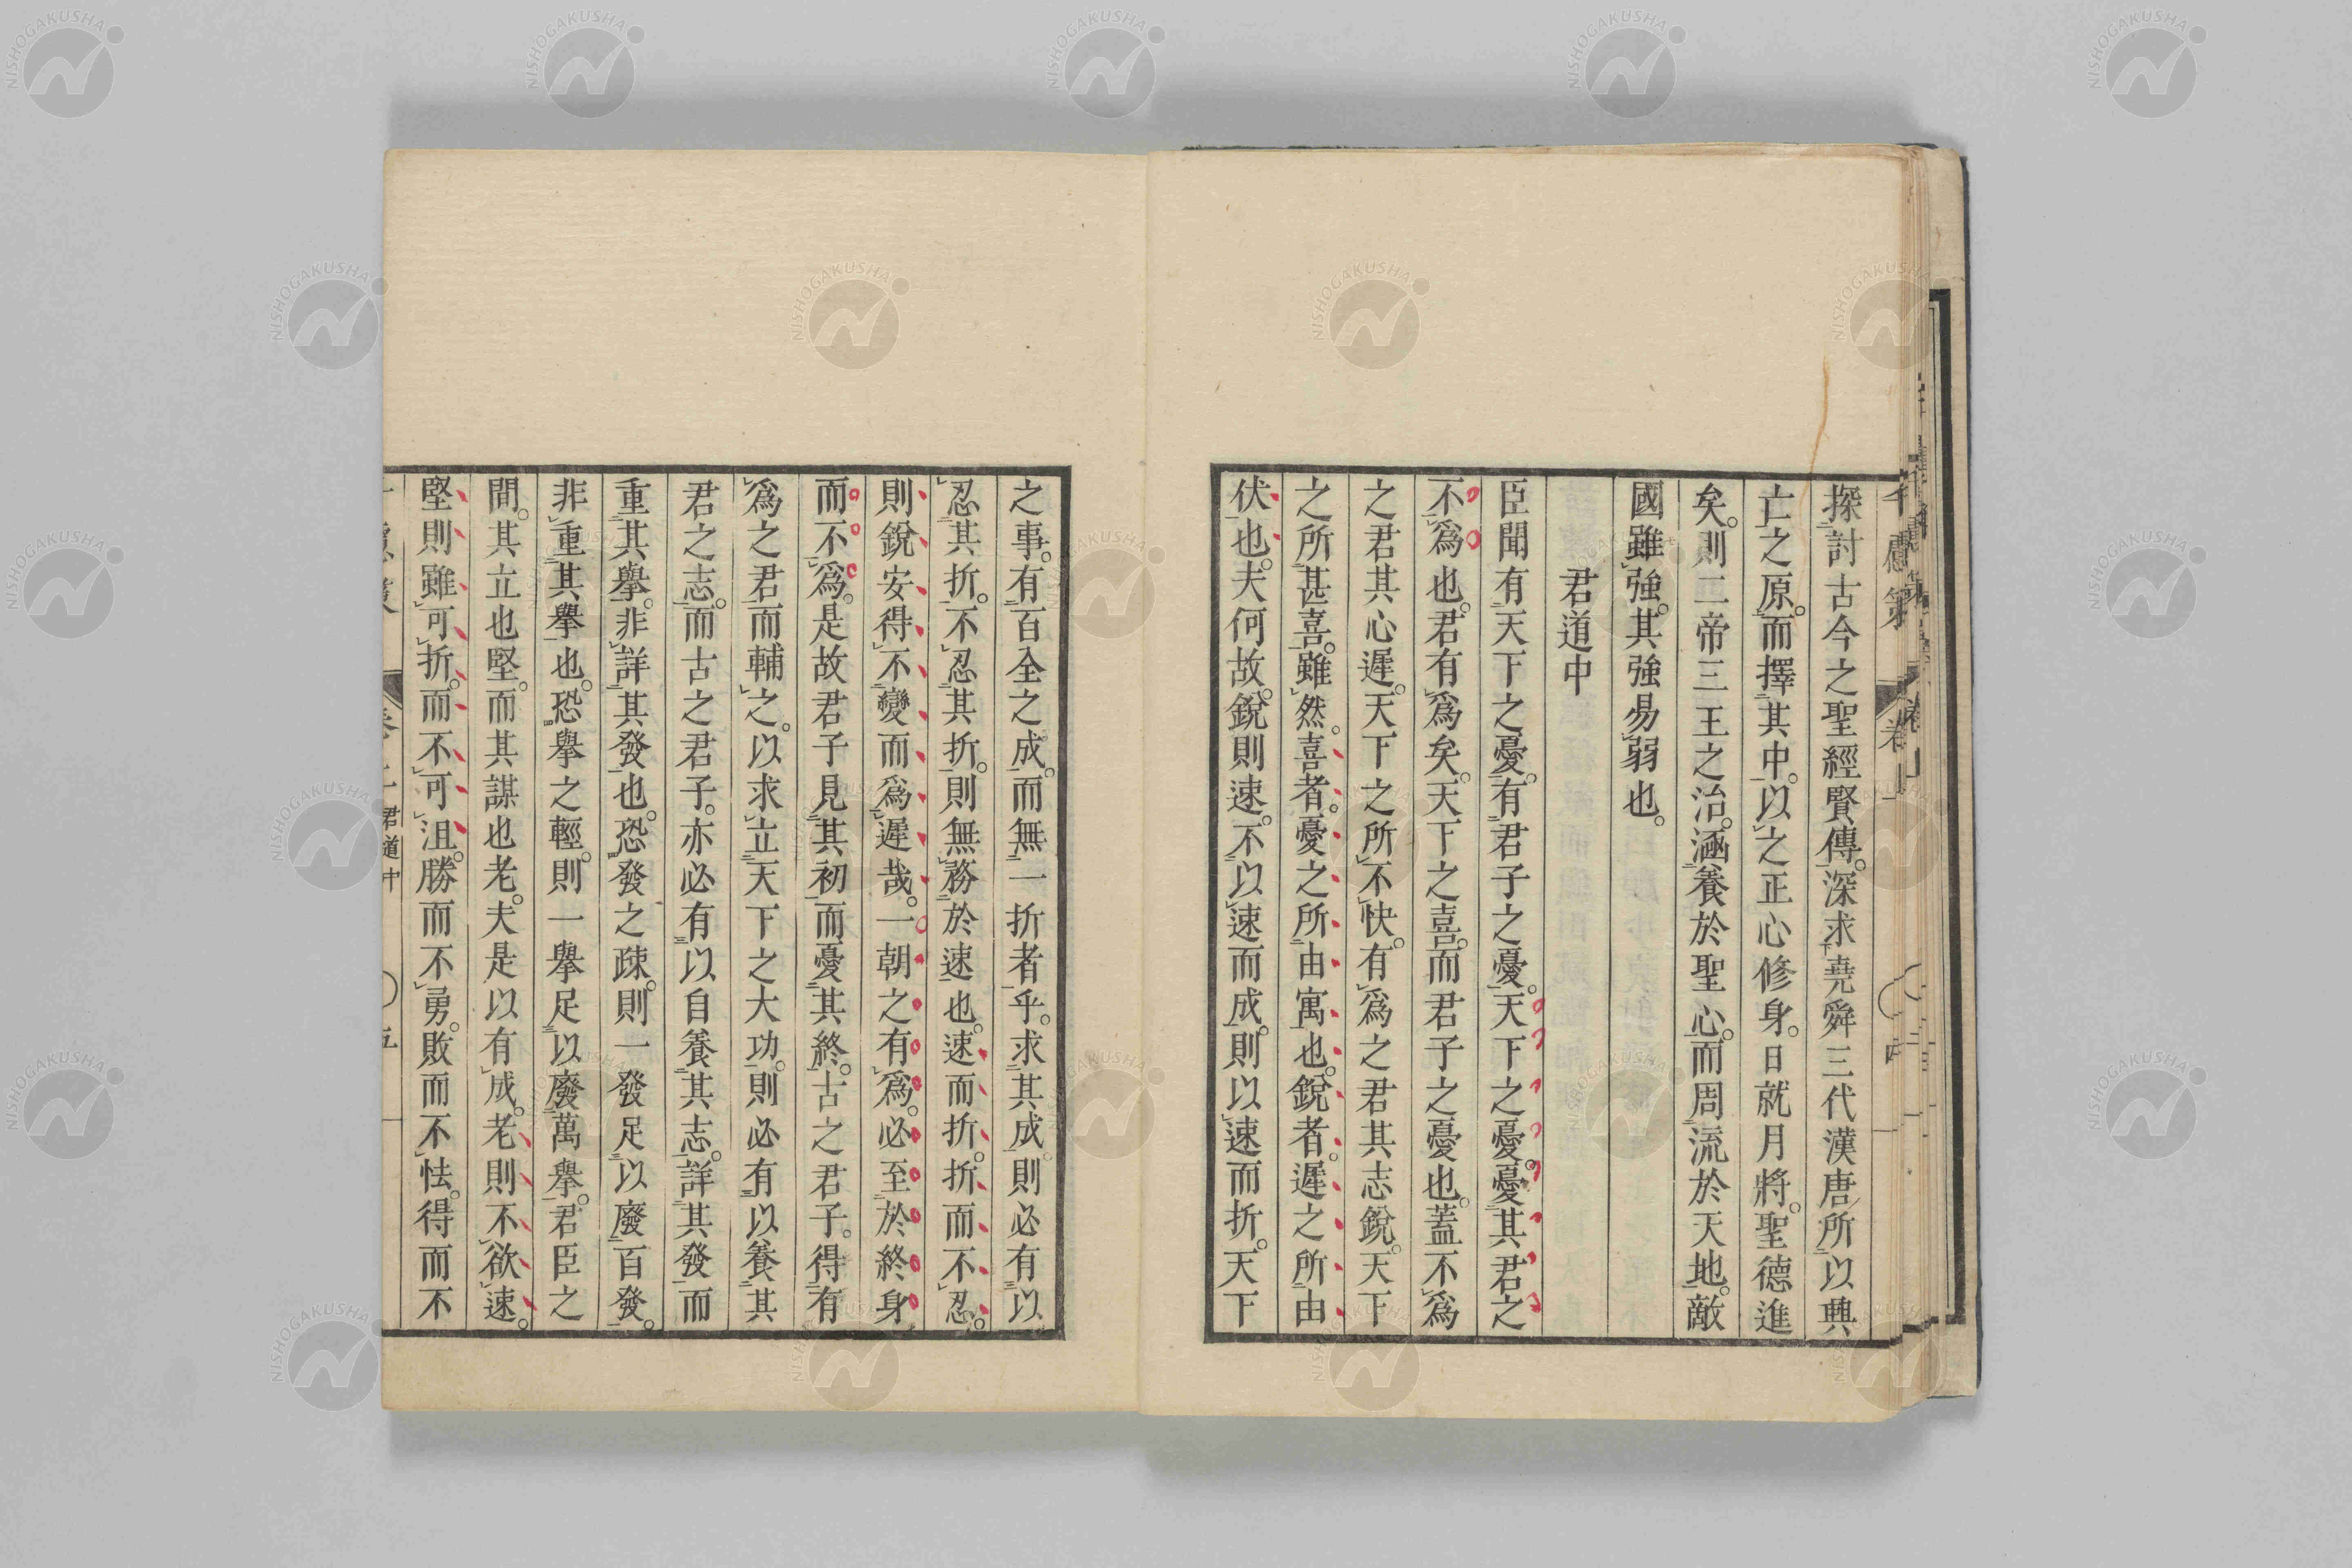 探討古今之聖經賢傳。深求堯舜三代漢唐所以興
亡之原。而擇其中。以之正心修身。日就月將。聖德進
矣。則二帝三王之治。涵養於聖心。而周流於天地。敵
國雖強。其強易弱也。
君道中
臣聞有天下之憂。有君子之憂。天下之憂。憂其君之
不爲也。君有爲矣。天下之喜。而君子之憂也。蓋不爲
之君其心遲。天下之所不快。有爲之君其志銳。天下
之所甚喜。雖然。喜者。憂之所由寓也。銳者。遲之所由
伏也。夫何故。銳則速。不以速而成。則以速而折。天下
之事。有百全之成。而無一折者乎。求其成。則必有以
忍其折。不忍其折。則無務於速也。速而折。折而不忍。
則銳安得不變而爲遲哉。一朝之有爲。必至於終身
而不爲。是故君子見其初而憂其終。古之君子。得有
爲之君而輔之。以求立天下之大功。則必有以養其
君之志。而古之君子。亦必有以自養其志。詳其發而
重其舉。非詳其發也。恐發之疎。則一發足以廢百發。
非重其舉也。恐舉之輕。則一舉足以廢萬舉。君臣之
間。其立也堅。而其謀也老。夫是以有成。老則不欲速。
堅則雖可折。而不可沮。勝而不勇。敗而不怯。得而不
君道中
五
千慮策
NISHOGAKUSHA